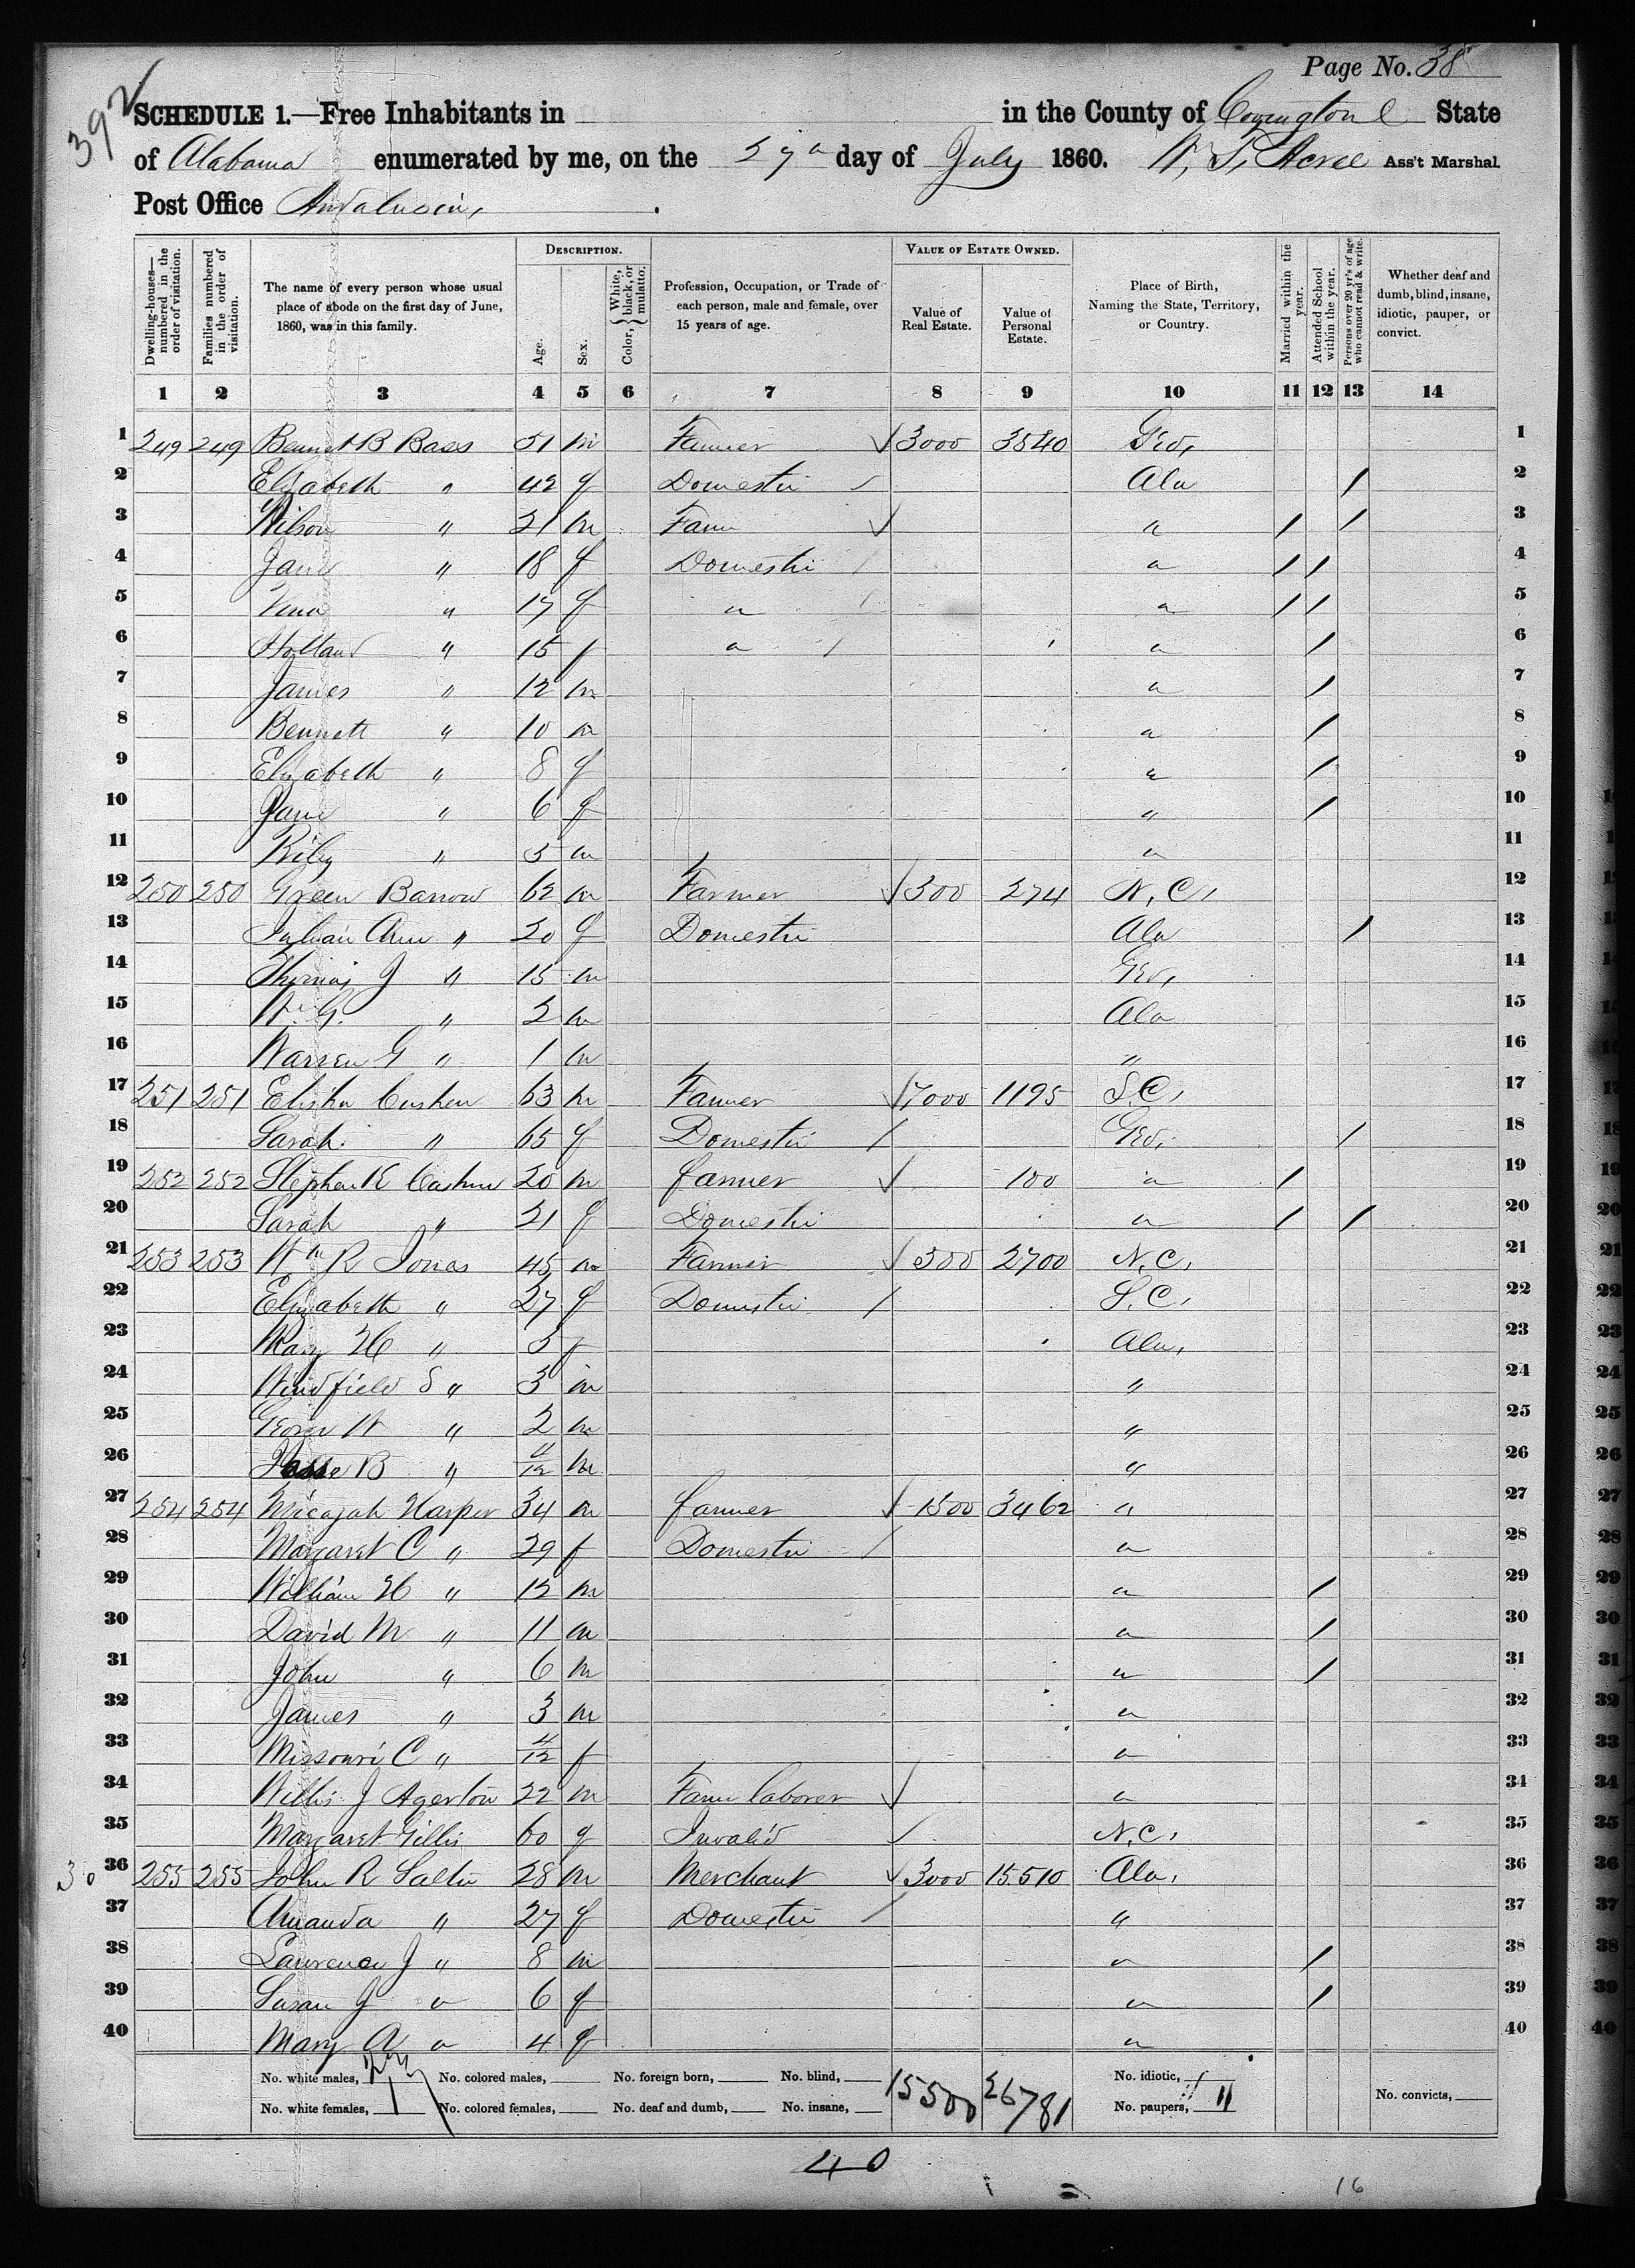 Page No. 38
392
SCHEDULE 1.—Free Inhabitants in in the County of Covington State
of Alabama enumerated by me, on the 27th day of July 1860. W. T. Acree Ass't Marshal
Post Office Andalusia,
Dwelling-houses—numbered in the order of visitation.
Families numbered in the order of visitation.
The name of every person whose usual place of abode on the first day of June, 1860, was in this family.
DESCRIPTION.
Age.
Sex.
Color, { White, black, or mulatto.
Profession, Occupation, or Trade of each person, male and female, over 15 years of age.
VALUE OF ESTATE OWNED.
Value of Real Estate.
Value of Personal Estate.
Place of Birth, Naming the State, Territory, or Country.
Married within the year.
Attended School within the year.
Persons over 20 yr's of age who cannot read & write.
Whether deaf and dumb, blind, insane, idiotic, pauper, or convict.
1 2 3 4 5 6 7 8 9 10 11 12 13 14
1 249 249 Bennet B Bass 51 m Farmer √ 3000 3540 Geo, 1
2 Elizabeth " 42 f Domestic Ala / 2
3 Wilson " 21 m Farm √ " / / 3
4 Jane " 18 f Domestic " / / 4
5 " 17 f " " / / 5
6 Holland " 15 f " " / 6
7 James " 12 m " / 7
8 Bennett " 10 m " / 8
9 Elizabeth " 8 f " / 9
10 Jane " 6 f " / 10
11 Riley " 5 m " 11
12 250 250 Green Barrow 62 m Farmer √ 300 274 N, C, 12
13 Ann " 20 f Domestic Ala / 13
14 Thomas J " 15 m Geo, 14
15 Wm G. " 2 m Ala 15
16 Warren G " 1 m " 16
17 251 251 Elisha Cushen 63 m Farmer √ 7000 1195 S.C, 17
18 Sarah " 65 f Domestic / Geo, / 18
19 252 252 Stephen 20 m farmer √ 100 " / 19
20 Sarah " 21 f Domestic " / / 20
21 253 253 Wm R Jones 45 m Farmer √ 300 2700 N. C, 21
22 Elizabeth " 27 f Domestic / S. C, 22
23 Mary H " 5 f Ala, 23
24 Windfield S " 3 m " 24
25 George W " 2 m " 25
26 B " 4/12 m " 26
27 254 254 Micajah Harper 34 m farmer √ 1500 3462 " 27
28 Margaret C " 29 f Domestic / " 28
29 William H " 12 m " / 29
30 David M " 11 m " / 30
31 John " 6 m " / 31
32 James " 3 m " 32
33 Missouri C " 4/12 f " 33
34 Willis J Agerton 22 m Farm laborer √ " 34
35 Margaret Gillis 60 f Invalid √ N. C, 35
30 36 255 255 John R Salter 28 m Merchant √ 3000 15.510 Ala, 36
37 Amanda " 27 f Domestic / " 37
38 Lawrence J " 8 m " / 38
39 Susan J " 6 f " / 39
40 Mary A " 4 f " 40
No. white males, No. colored males, No. foreign born, No. blind, No. idiotic,
No. white females, No. colored females, No. deaf and dumb, No. insane, No. paupers, No. convicts,
15500 26781 11
40
16